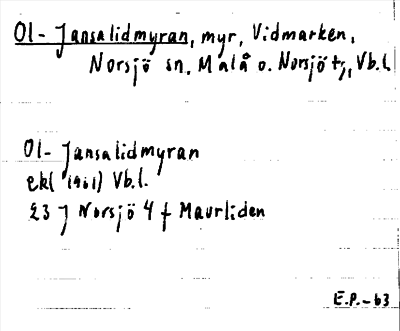 Ol-Jansalidmyran, myr, Vidmarken,
Norsjö sn. Malå o. Norsjö tj, Vb.l.
Ol-Jansalidmyran
ekl (1961) Vb.l.
23 J Norsjö 4 f Maurliden
E.P.-63